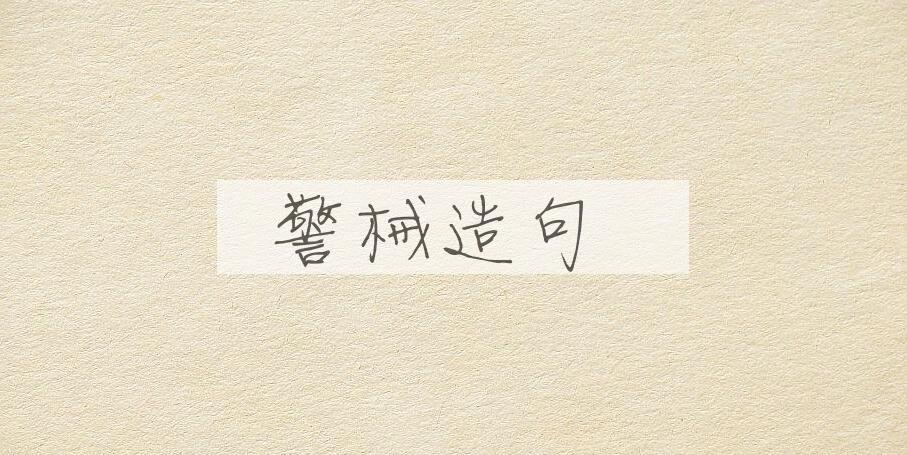 警械造句